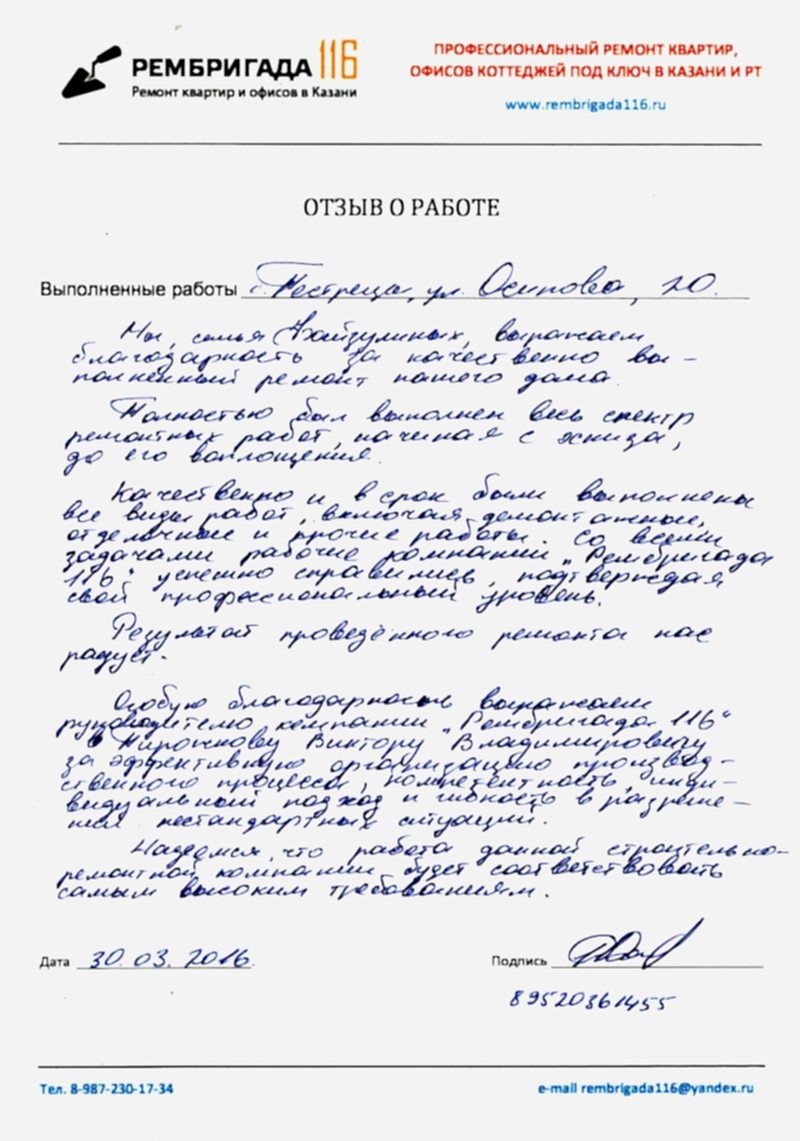 РЕМБРИГАДА 116
Ремонт квартир и офисов в Казани
ПРОФЕССИОНАЛЬНЫЙ РЕМОНТ КВАРТИР,
ОФИСОВ КОТТЕДЖЕЙ ПОД КЛЮЧ В КАЗАНИ И РТ
www.rembrigada116.ru
ОТЗЫВ О РАБОТЕ
Выполненные работы с. Пестрецы, ул. Осипова, 20.
Мы, семья Файзулиных, выражаем
благодарность за качественно вы-
полненный ремонт нашего дома.
Полностью был выполнен весь спектр
ремонтных работ, начиная с эскиза,
до его воплощения.
Качественно и в срок были выполнены
все виды работ, включая демонтажные,
отделочные и прочие работы. Со всеми
задачами рабочие компании „Рембригада
116" успешно справились, подтверждая
свой профессиональный уровень.
Результат проведённого ремонта нас
радует.
Особую благодарность выражаем
руководителю компании „Рембригада 116"
Виктору Владимировичу
за эффективную организацию производ-
ственного процесса, компетентность, инди-
видуальный подход и гибкость в разреше-
нии нестандартных ситуаций.
Надеемся, что работа данной строительно-
ремонтной компании будет соответствовать
самым высоким требованиям.
Дата 30.03.2016.
Подпись
89520361455
Тел. 8-987-230-17-34
e-mail rembrigada116@yandex.ru